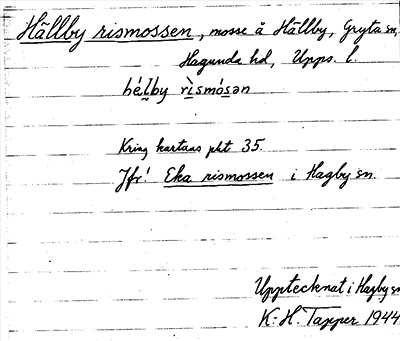 Hällby rismossen, mosse å Hällby, Gryta sn,
Hagunda hd, Upps. l.
hé̀l̥by rìsmós̥ən
Kring kartans pkt 35.
Jfr! Eka rismossen i Hagby sn.
Upptecknat i Hagby sn
K. H. Tapper 1944